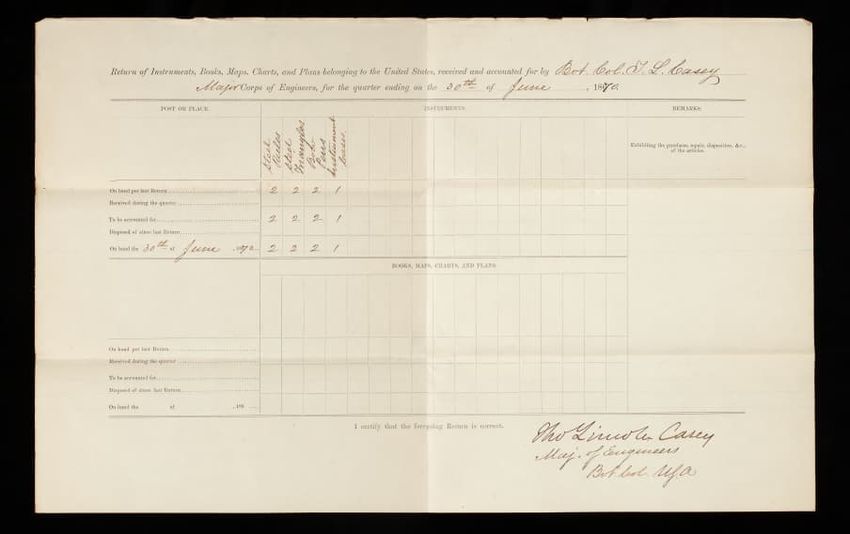 Return of Instruments, Books, Maps, Charts, and Plans belonging to the United States, received and accounted for by Bvt. Col. T. L. Casey
Major Corps of Engineers, for the quarter ending on the 30th of June, 1870.
POST OR PLACE. INSTRUMENTS. REMARKS:
Steel Scales
Steel Triangles
Bow Pens
Instrument Cases
Exhibiting the purchase, repair, disposition, &c., of the articles.
On hand per last Return 2 2 2 1
Received during the quarter
To be accounted for 2 2 2 1
Disposed of since last Return
On hand the 30th of June, 1870 2 2 2 1
BOOKS, MAPS, CHARTS, AND PLANS.
On hand per last Return
Received during the quarter
To be accounted for
Disposed of since last Return
On hand the of , 18
I certify that the foregoing Return is correct.
Tho Lincoln Casey
Maj. of Engineers
Bvt Col. USA